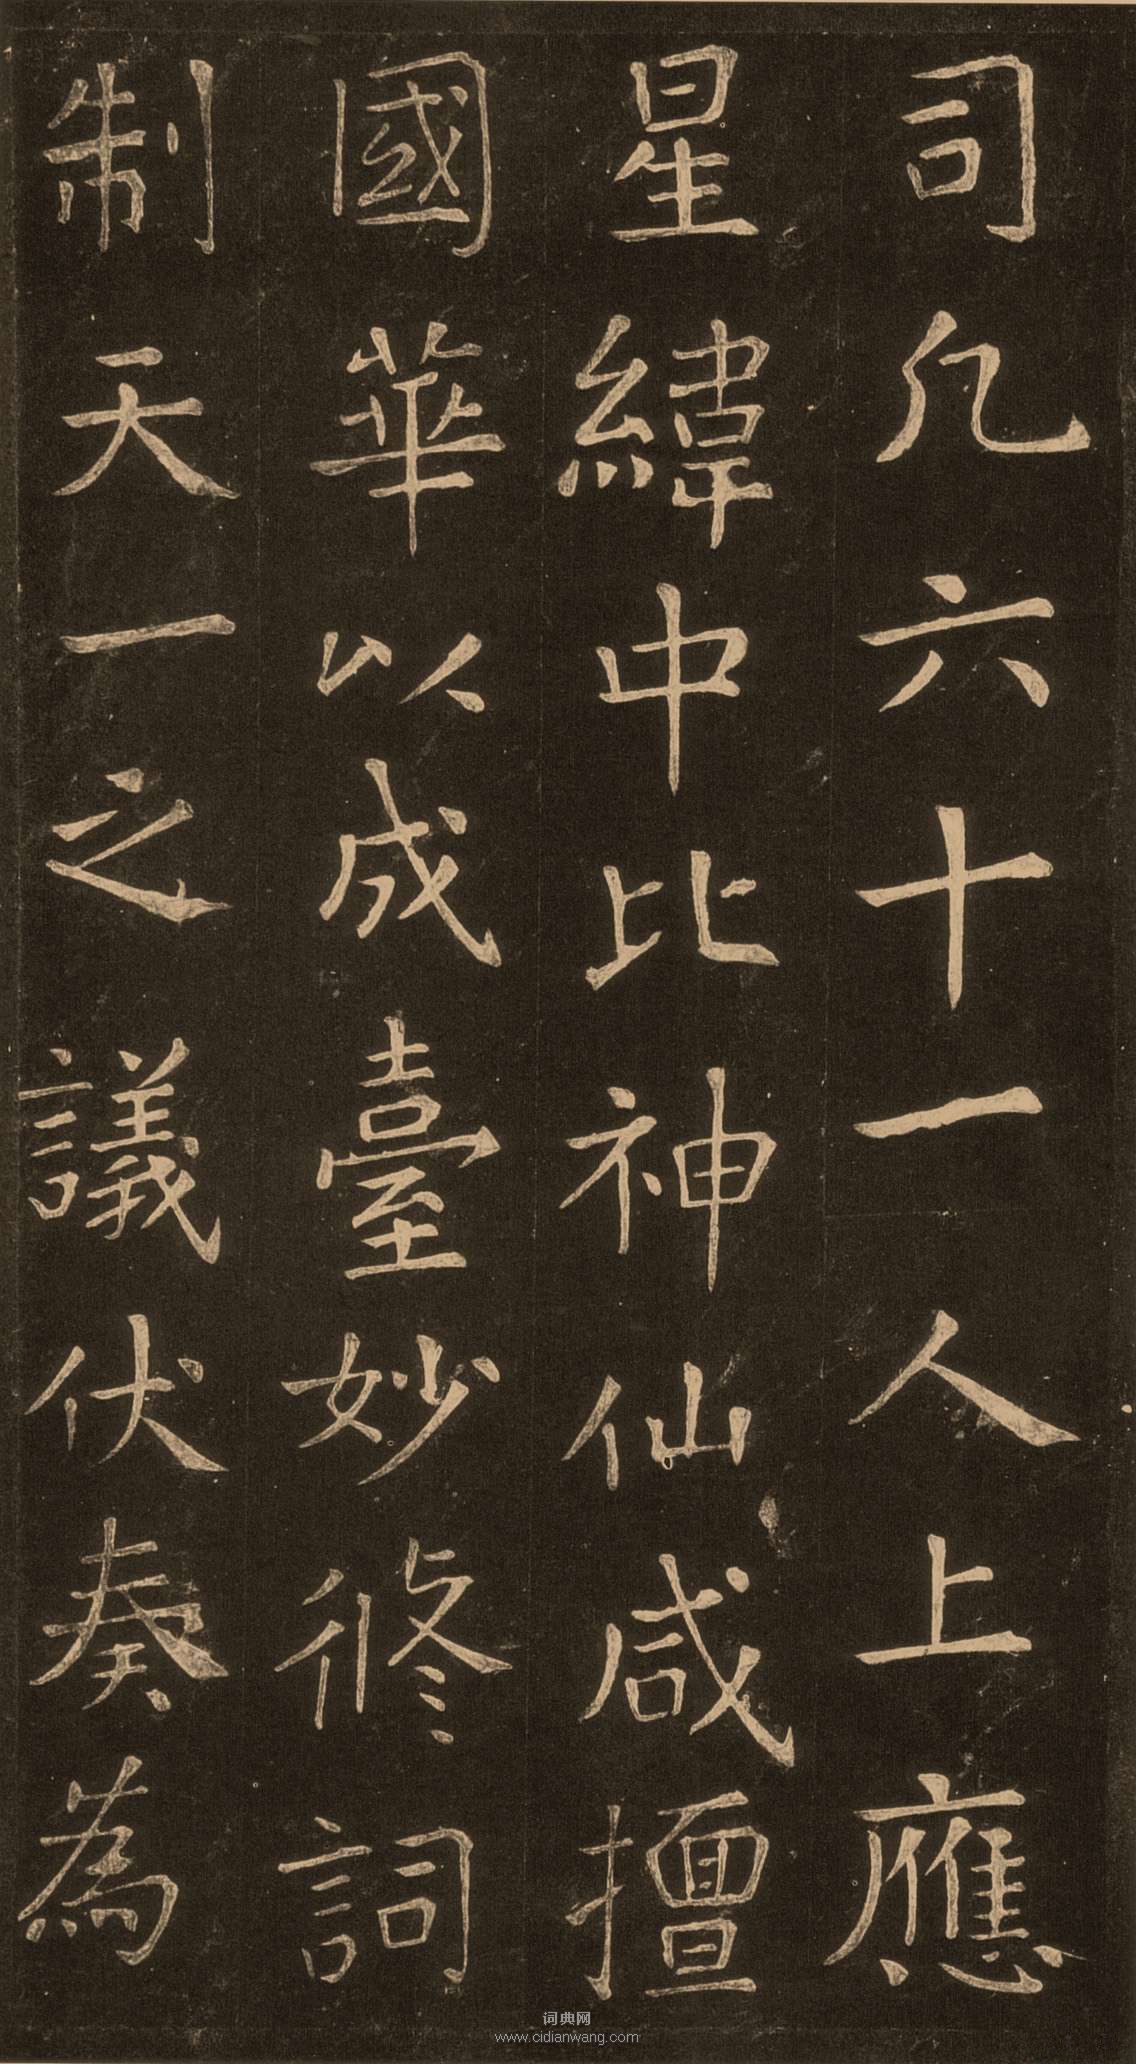 司凡六十一人上應
星緯中比神仙咸擅
國華以成臺妙修詞
制天一之議伏奏為
词典网
www.cidianwang.com